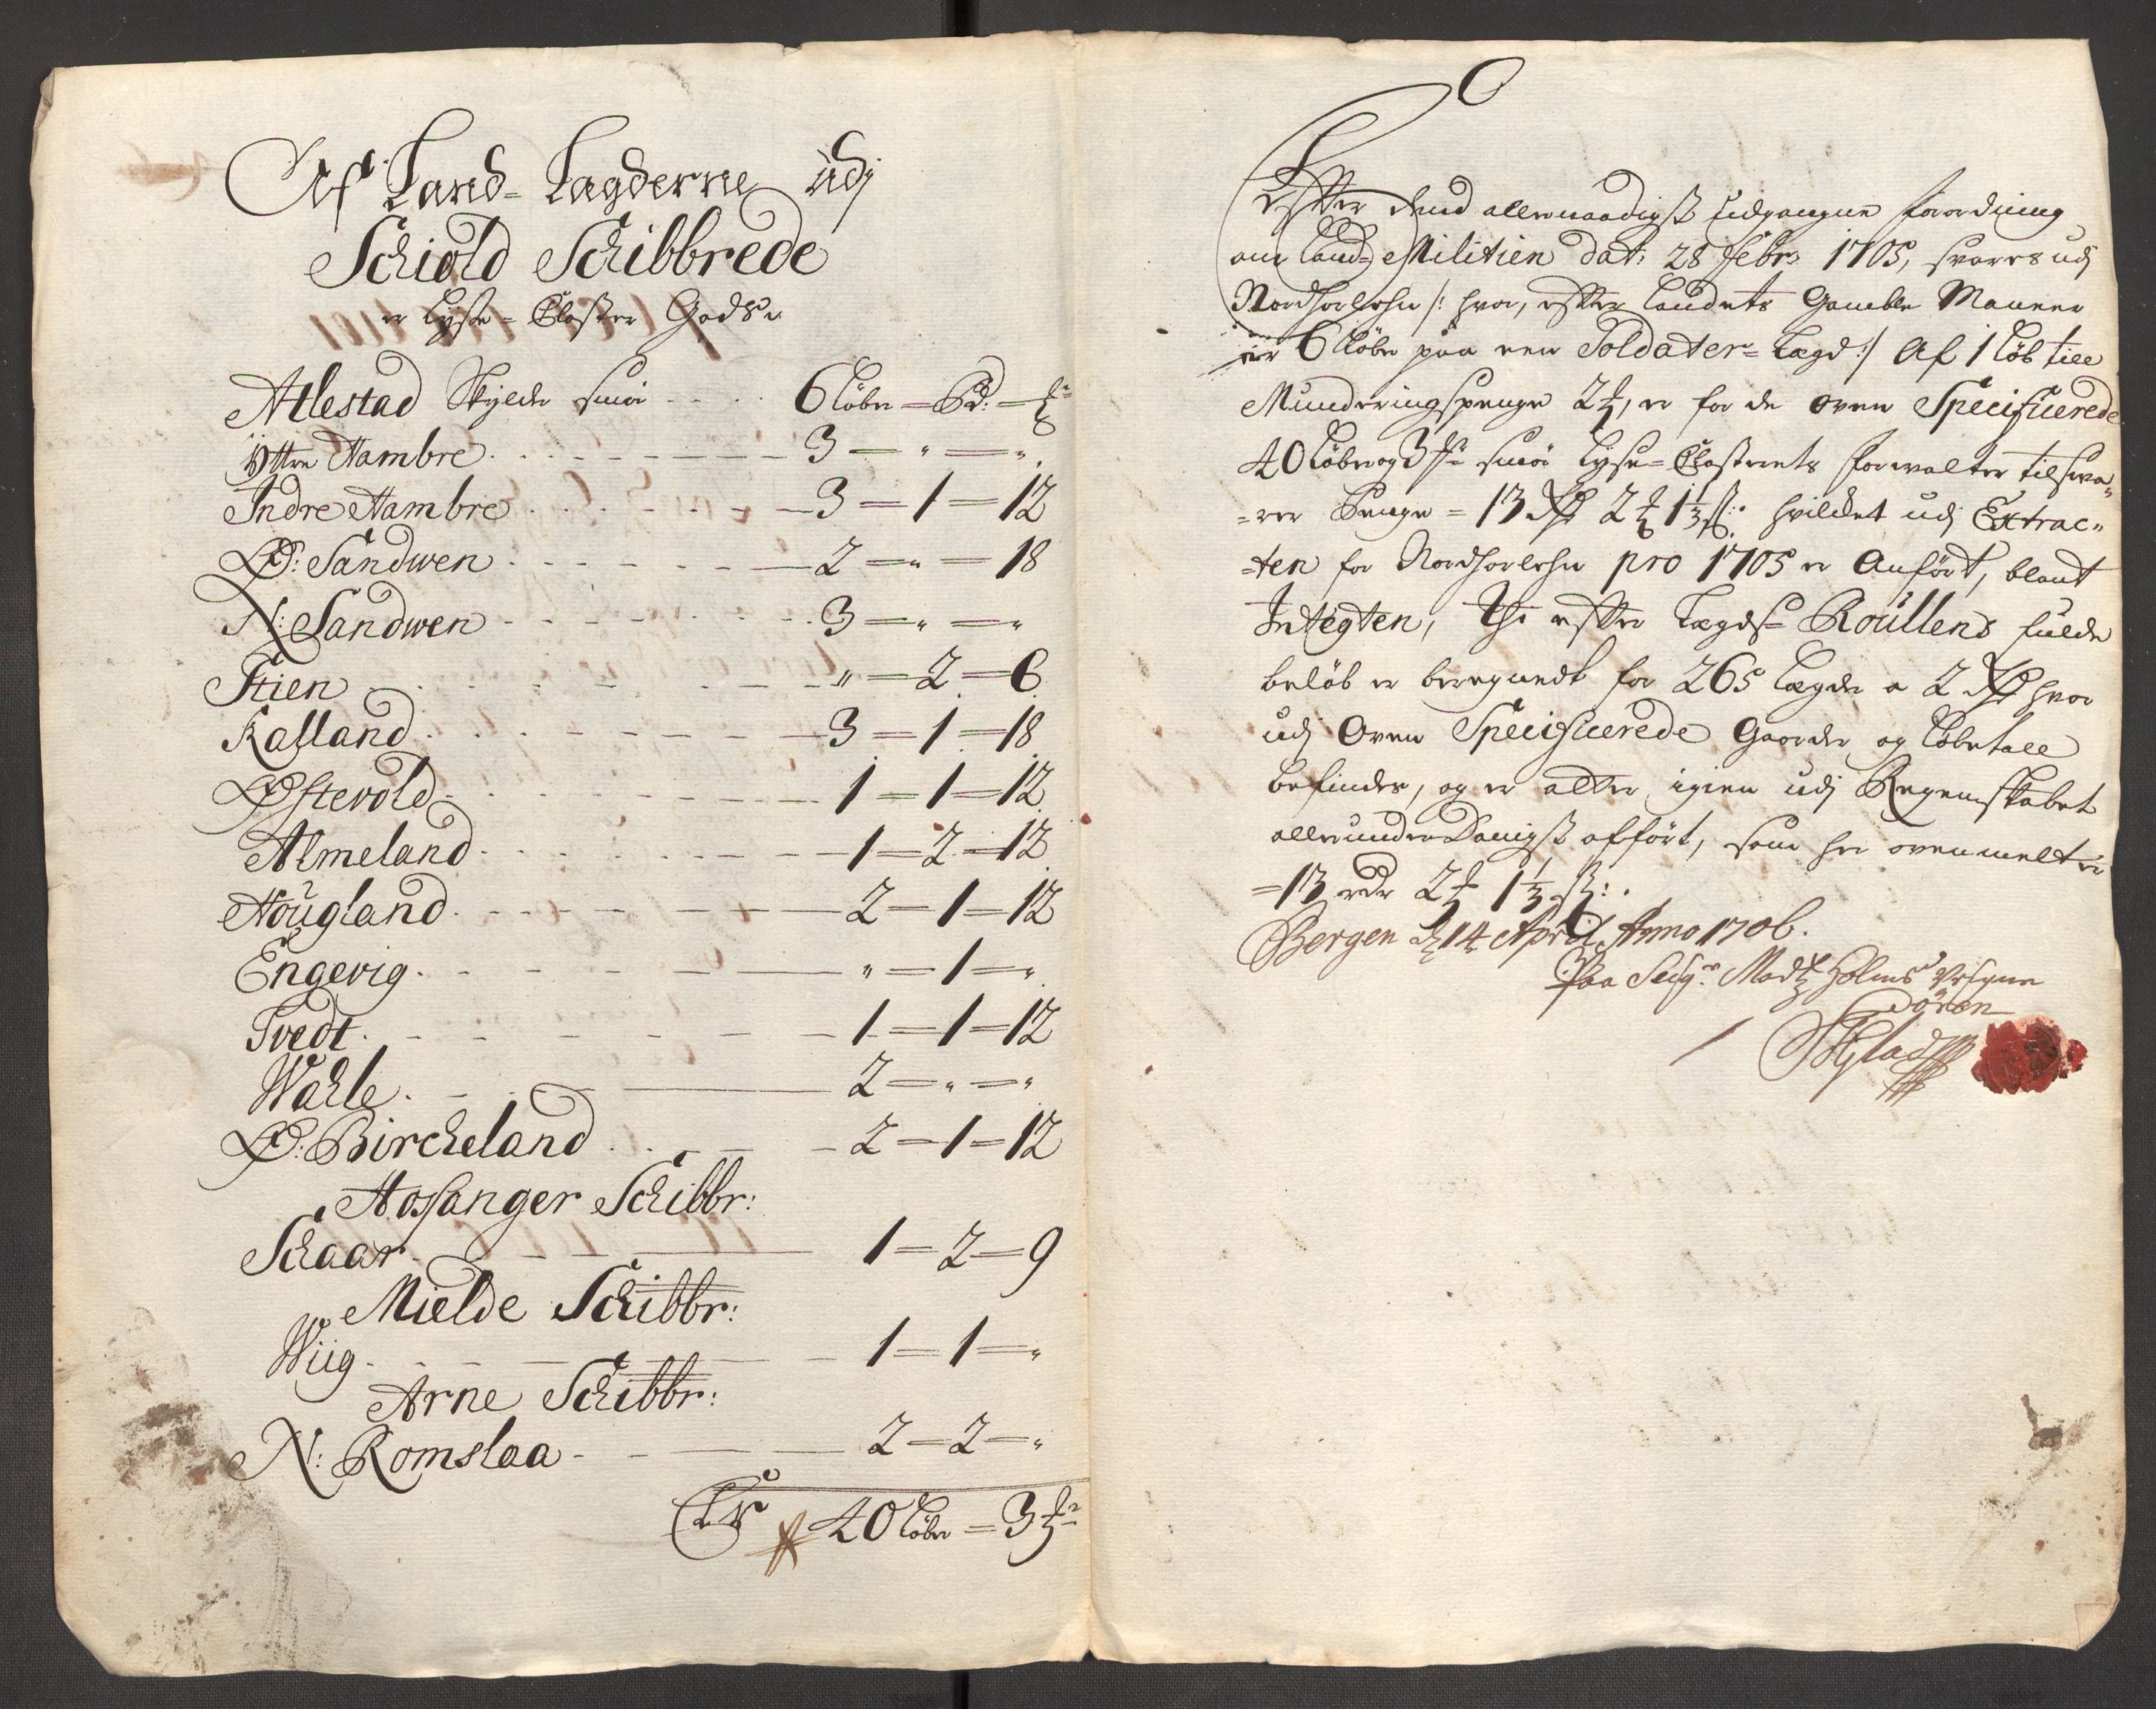 Af Land-Lægderne udj
Schiold Schibbrede
er Lyse-Closter Gods
Atlestad Skylder smør 6 Løber
Yttre Hambre 3 = " = "
Indre Hambre 3 = 1 = 12
Ø: Sandwen 2 = " = 18
N: Sandwen 3 = " = "
Stien " = 2 = 6
Kalland 3 = 1 = 18
Østevold 1 = 1 = 12
Almeland 1 = 2 = 12
Hougland 2 = 1 = 12
Engevig " = 1 = "
Tvedt 1 = 1 = 12
Wahle 2 = " = "
Ø: Bircheland 2 = 1 = 12
Hosanger Schibbr:
Schaar 1 = 2 = 9
Mielde Schibbr:
Wiig 1 = 1 = "
Arne Schibbr:
N: Romslaa 2 = 2 = "
Er 40 Løber = 3
Effter dend allernaadigst udgangne forordning
om Land-Militien dat: 28 Febr: 1705, svares udj
Nordhorlehn /: hvor, efter Landets Gamble Maneer
er 6 Løber paa een Soldater-Lægd :/ Af 1 Løb till
Munderingspenge 2, er for de oven Specificerede
40 Løber og 3 smør Lyse-Closterets forvalter tilsva-
=rer Penge = 13 Rdr 2 1 1/3 ß: hvilcket udj Extrac-
=ten for Nordhorlehn pro 1705 er Anført, blant
Integten, Thi efter Lægds-Roullens fulde
beløb er beregnedt for 265 Lægder a 2 Rdr hvor
udj Oven Specificerede Gaarder og Løbetall
befindes, og er atter igien udj Regenskabet
allerunderdanigst afført, som her ovenmelt er
=13 rdr 2 1 1/3 ß:
Bergen d 14 April Anno 1706.
Paa Seigr Madtz Holms Vegne
Søren